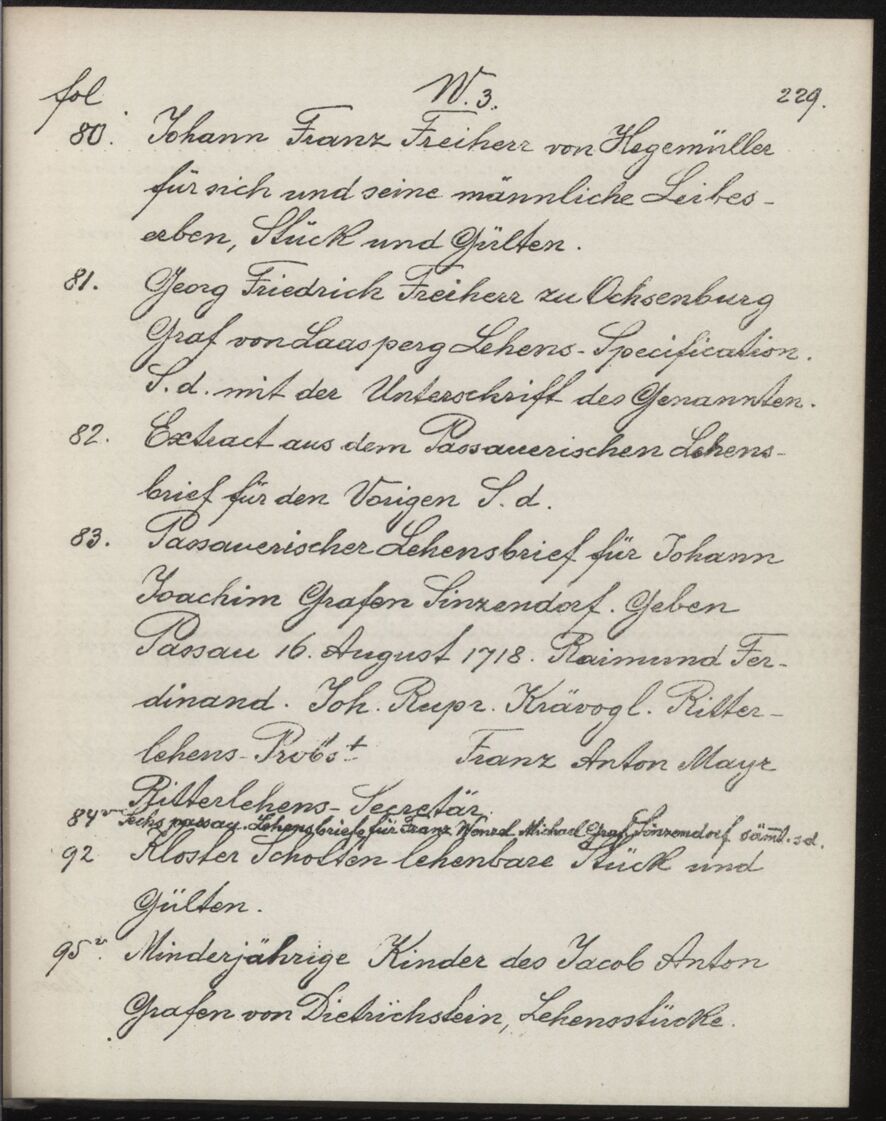 fol W. 3. 229.
80. Johann Franz Freiherr von Hegemüller
für sich und seine männliche Leibes-
erben, Stück und Gülten.
81. Georg Friedrich Freiherr zu Ochsenburg
Graf von Laasperg Lehens-Specification.
S. d. mit der Unterschrift des Genannten.
82. Extract aus dem Passauerischen Lehens-
brief für den Vorigen S. d.
83. Passauerischer Lehensbrief für Johann
Joachim Grafen Sinzendorf. Geben
Passau 16. August 1718. Raimund Fer-
dinand. Joh. Rupr. Krävogl. Ritter-
lehens-Probst Franz Anton Mayr
Ritterlehens-Secretär.
84v Sechs passau. Lehensbriefe für Franz Wenzel Michael Graf Sinzendorf sämt. s.d.
92 Kloster Schotten lehenbare Stück und
Gülten.
95v. Minderjährige Kinder des Jacob Anton
Grafen von Dietrichstein, Lehensstücke.